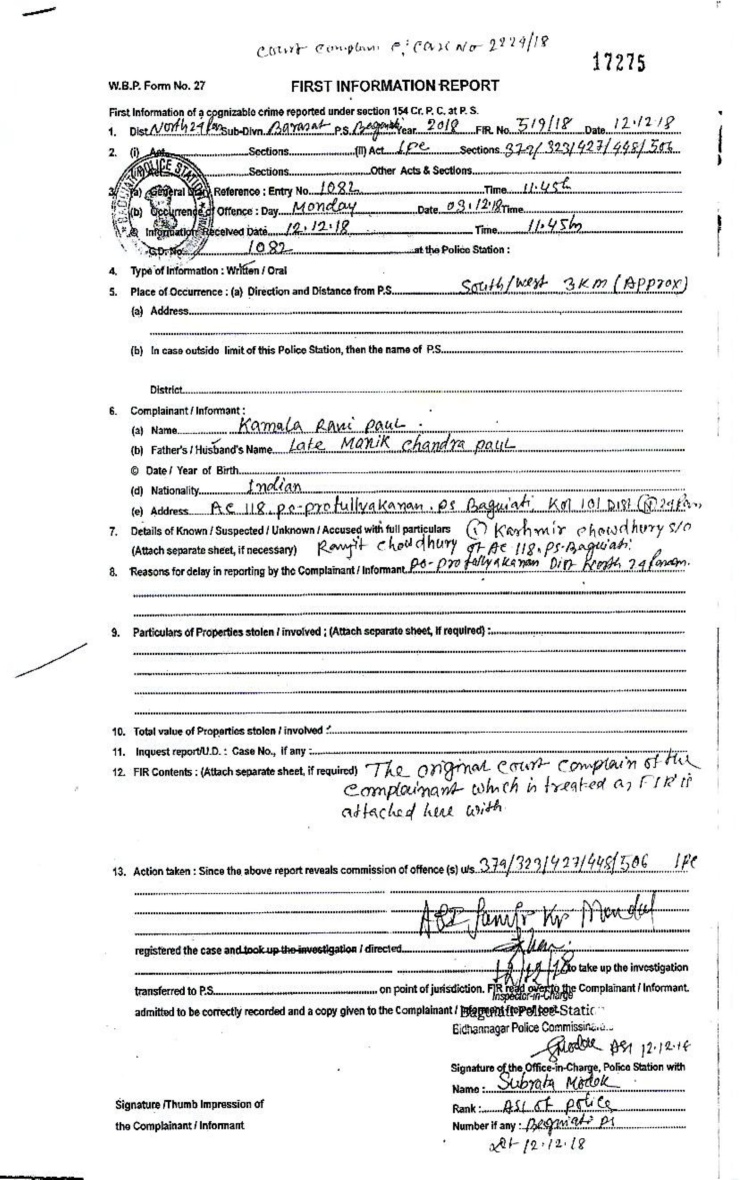 Court Complain C/Case No 2229/18
17275
W.B.P. Form No. 27
FIRST INFORMATION REPORT
First Information of a cognizable crime reported under section 154 Cr. P. C. at P. S.
1. Dist. North 24 Pan Sub-Divn. Barasat P.S. Baguiati Year 2018 FIR. No. 519/18 Date 12.12.18
2. (i) Act Sections (II) Act IPC Sections 379/323/427/448/506
Sections Other Acts & Sections
3. (a) General Diary Reference : Entry No. 1082 Time 11.45h
(b) Occurrence of Offence : Day Monday Date 03.12.18 Time
© Information Received Date 12.12.18 Time 11.45h
G.D. No. 1082 at the Police Station :
BAGUIATI POLICE STATION
4. Type of Information : Written / Oral
5. Place of Occurrence : (a) Direction and Distance from P.S. South/West 3 KM (Approx)
(a) Address
(b) In case outside limit of this Police Station, then the name of P.S.
District
6. Complainant / Informant :
(a) Name Kamala Rani Paul
(b) Father's / Husband's Name Late Manik Chandra Paul
© Date / Year of Birth
(d) Nationality Indian
(e) Address AC 118, po-profullyakanan, PS Baguiati Kol 101 Dist (N) 24 Pan
7. Details of Known / Suspected / Unknown / Accused with full particulars (1) Kashmir Chowdhury S/O
(Attach separate sheet, if necessary) Ranjit Chowdhury of AC 118, PS-Baguiati
8. Reasons for delay in reporting by the Complainant / Informant Po-profullyakanan Dist North 24 Param.
9. Particulars of Properties stolen / involved ; (Attach separate sheet, if required) :
10. Total value of Properties stolen / involved :
11. Inquest report/U.D. : Case No., if any :
12. FIR Contents : (Attach separate sheet, if required) The original court complain of the
complainant which is treated as FIR is
attached here with
13. Action taken : Since the above report reveals commission of offence (s) u/s 379/323/427/448/506 IPC
ASI Kr Mondal
registered the case and took up the investigation / directed
12/12/18 to take up the investigation
transferred to P.S. on point of jurisdiction. FIR read over to the Complainant / Informant.
Inspector-in-Charge
admitted to be correctly recorded and a copy given to the Complainant / Informant free of cost.
Baguiati Police Station
Bidhannagar Police Commissionerate
ASI 12.12.18
Signature of the Office-in-Charge, Police Station with
Name : Subrata Modok
Signature /Thumb Impression of
Rank : ASI of police
the Complainant / Informant
Number if any : Baguiati PS
12.12.18